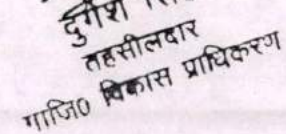 दुर्गेश
तहसीलदार
गाजि0 विकास प्राधिकरण